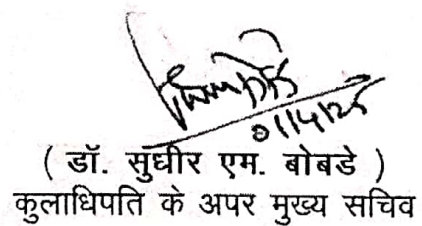 01/4/25
( डॉ. सुधीर एम. बोबडे )
कुलाधिपति के अपर मुख्य सचिव